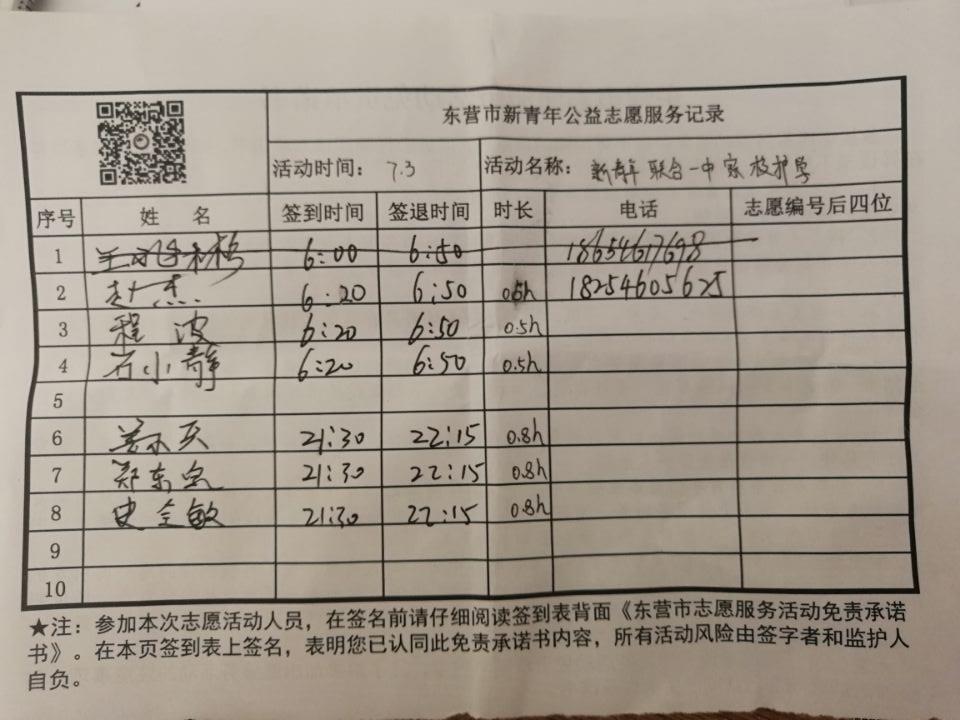 东营市新青年公益志愿服务记录
活动时间： 7.3 活动名称：新青年联合一中家校护学
序号 姓 名 签到时间 签退时间 时长 电话 志愿编号后四位
1 6:00 6:50 18654617698
2 赵杰 6:20 6:50 0.5h 18254605625
3 程波 6:20 6:50 0.5h
4 石小静 6:20 6:50 0.5h
5
6 21:30 22:15 0.8h
7 郑东 21:30 22:15 0.8h
8 史全敏 21:30 22:15 0.8h
9
10
★注：参加本次志愿活动人员，在签名前请仔细阅读签到表背面《东营市志愿服务活动免责承诺
书》。在本页签到表上签名，表明您已认同此免责承诺书内容，所有活动风险由签字者和监护人
自负。